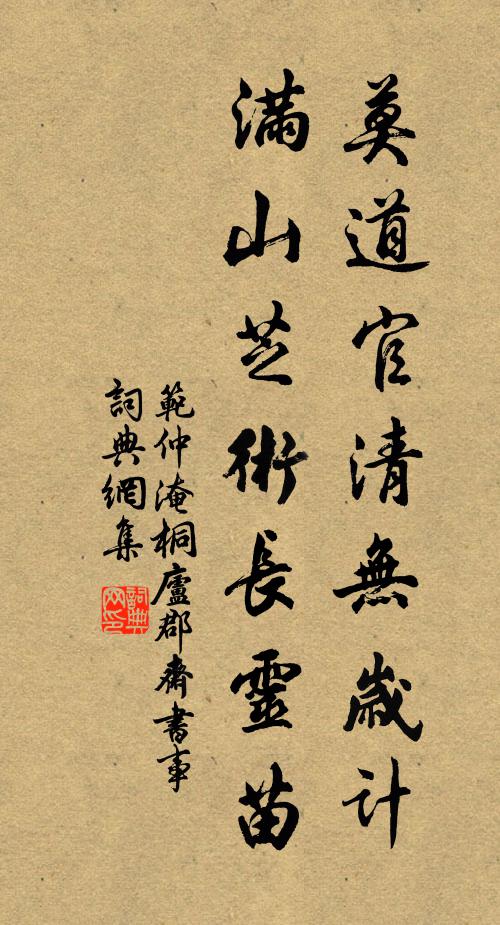 莫道官清無歲計
滿山芝術長靈苗
範仲淹桐廬郡齋書事
詞典網集
詞典網印